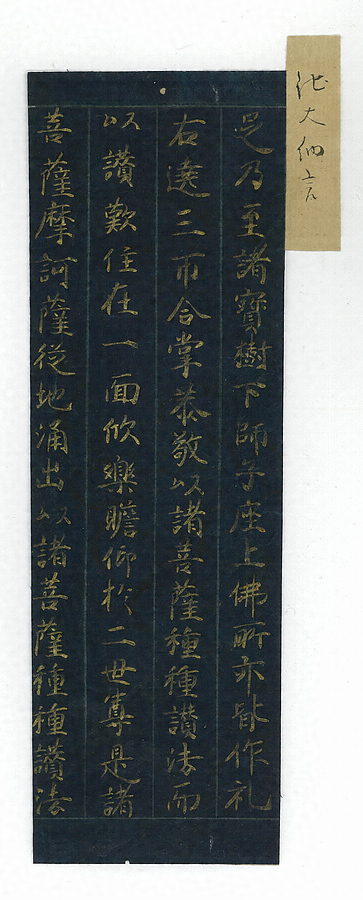 足乃至諸寶樹下師子座上佛所亦皆作礼
右遶三帀合掌恭敬以諸菩薩種種讃法而
以讃歎住在一面欣樂瞻仰於二世尊是諸
菩薩摩訶薩従地涌出以諸菩薩種種讃法
大納言